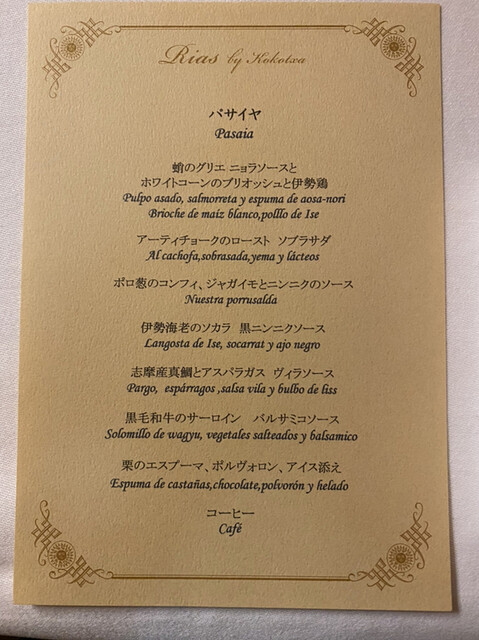 Rias by Kokotxa
パサイヤ
Pasaia
蛸のグリエ ニョラソースと
ホワイトコーンのブリオッシュと伊勢鶏
Pulpo asado, salmorreta y espuma de aosa-nori
Brioche de maíz blanco,polllo de Ise
アーティチョークのロースト ソブラサダ
Al cachofa,sobrasada,yema y lácteos
ポロ葱のコンフィ、ジャガイモとニンニクのソース
Nuestra porrusalda
伊勢海老のソカラ 黒ニンニクソース
Langosta de Ise, socarrat y ajo negro
志摩産真鯛とアスパラガス ヴィラソース
Pargo, espárragos ,salsa vila y bulbo de liss
黒毛和牛のサーロイン バルサミコソース
Solomillo de wagyu, vegetales salteados y balsamico
栗のエスプーマ、ポルヴォロン、アイス添え
Espuma de castañas,chocolate,polvorón y helado
コーヒー
Café